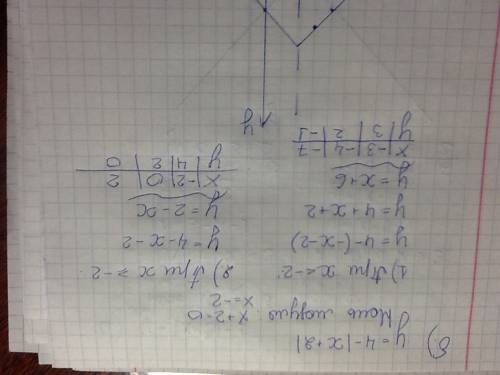 б) y = 4 - |x + 2|
Ноль модуля: x + 2 = 0
x = -2
1) При x < -2
y = 4 - (-x - 2)
y = 4 + x + 2
y = x + 6
x | -3 | -4 | -7
y | 3 | 2 | -1
2) При x ⩾ -2
y = 4 - x - 2
y = 2 - x
x | -2 | 0 | 2
y | 4 | 2 | 0
y